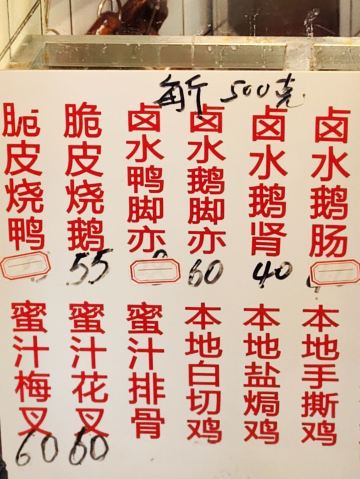 每斤 500克
脆皮烧鸭
脆皮烧鹅
55
卤水鸭脚亦
卤水鹅脚亦
60
卤水鹅肾
40
卤水鹅肠
蜜汁梅叉
60
蜜汁花叉
60
蜜汁排骨
本地白切鸡
本地盐焗鸡
本地手撕鸡